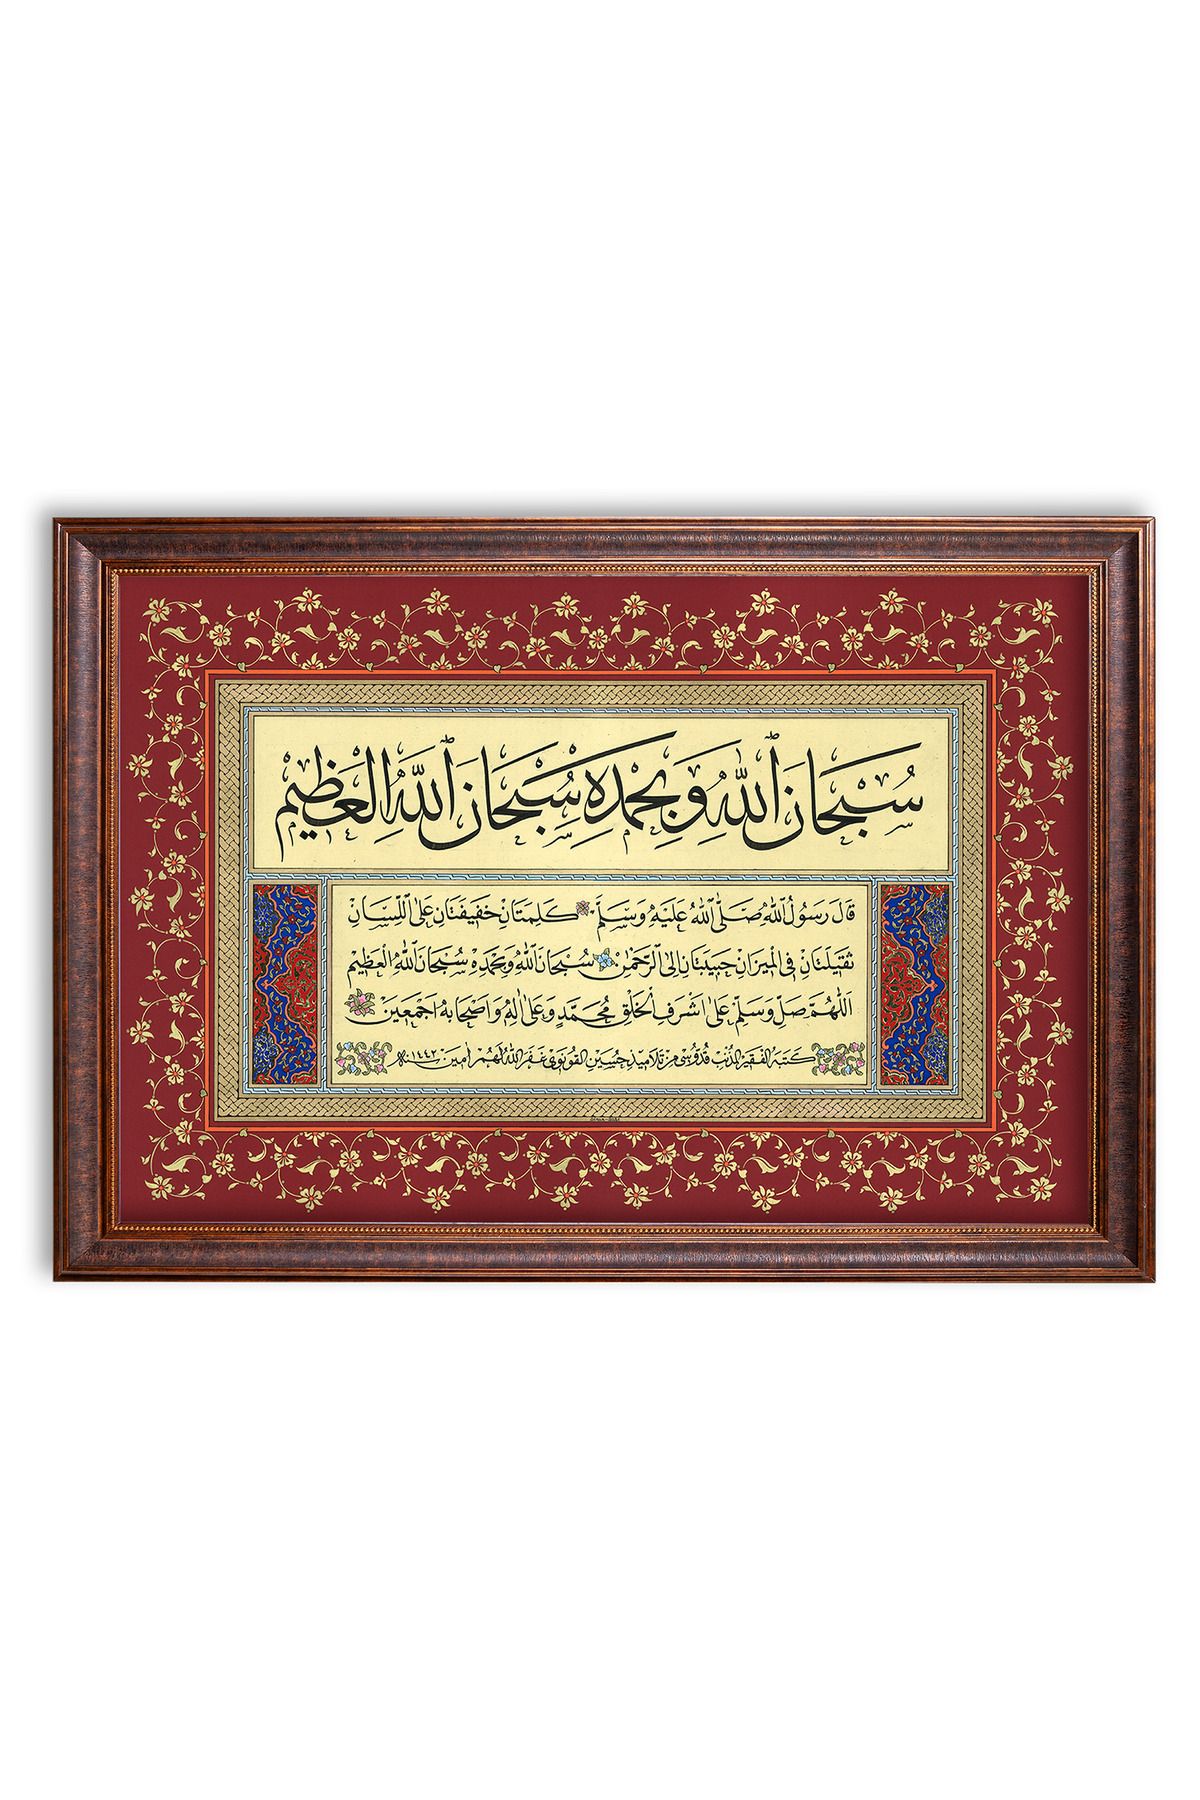 سُبْحَانَ اللّٰهِ وَبِحَمْدِهِ سُبْحَانَ اللّٰهِ الْعَظِيمِ
قَالَ رَسُولُ اللّٰهِ صَلَّى اللّٰهُ عَلَيْهِ وَسَلَّمَ كَلِمَتَانِ خَفِيفَتَانِ عَلَى اللِّسَانِ
ثَقِيلَتَانِ فِى الْمِيزَانِ حَبِيبَتَانِ اِلَى الرَّحْمٰنِ سُبْحَانَ اللّٰهِ وَبِحَمْدِهِ سُبْحَانَ اللّٰهِ الْعَظِيمِ
اَللّٰهُمَّ صَلِّ وَسَلِّمْ عَلٰى اَشْرَفِ الْخَلْقِ مُحَمَّدٍ وَعَلٰى اٰلِهِ وَاَصْحَابِهِ اَجْمَعِينَ
كَتَبَهُ الْفَقِيرُ الْمُذْنِبُ قُدُّوسِى مِنْ تَلَامِيذِ حُسَيْنِ الْقُونَوِى غَفَرَ اللّٰهُ لَهُمْ اٰمِينَ سنة ١٤٤٢